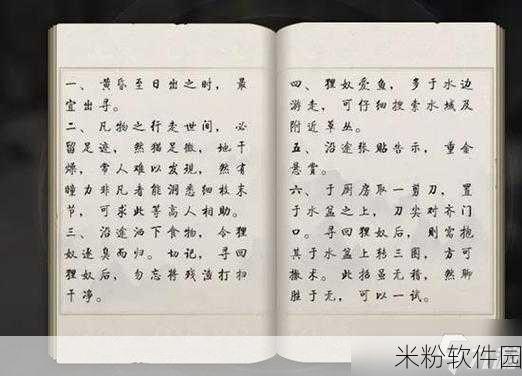 一、黄昏至日出之时，最
宜出寻。
二、凡物之行走世间，必
留足迹，然猫足微，地干
燥，常人难以发现，然有
瞳力非凡者能洞悉细枝末
节，可求此等高人相助。
三、沿途洒下食物，令狸
奴逐臭而归。切记，寻回
狸奴后，勿忘将残渣打扫
干净。
四、狸奴爱鱼，多于水边
游走，可仔细搜索水域及
附近草丛。
五、沿途张贴告示，重金
悬赏。
六、于厨房取一剪刀，置
于水盆之上，刀尖对齐门
口。寻回狸奴后，则需抱
其于水盆上转三圈，方可
撤术。此招虽无稽，然聊
胜于无，可以一试。
米粉软件园